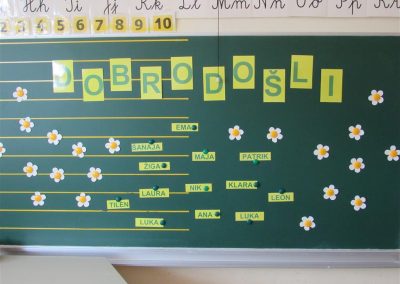 Hh Ii Jj Kk Ll Mm Nn Oo Pp Rr
2 3 4 5 6 7 8 9 10
DOBRODOŠLI
EMA
SANAJA
MAJA
PATRIK
ŽIGA
LAURA
NIK
KLARA
TILEN
LEON
ANA
LUKA
LUKA